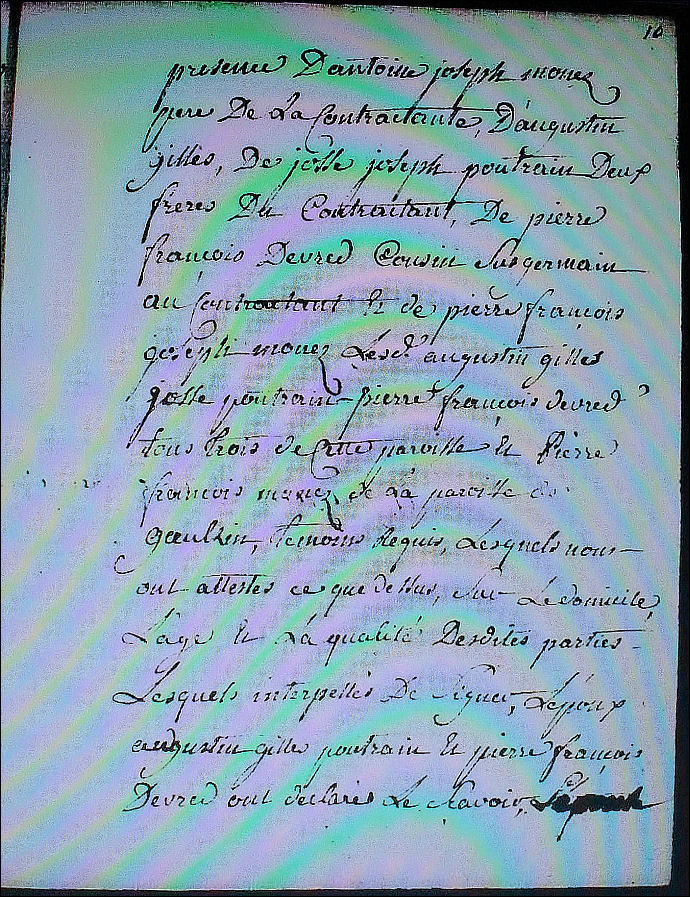 16
presence Dantoine joseph monez
pere De La Contractante, D'augustin
gilles, De josse joseph poutrain Deux
freres Du Contractant, De pierre
francois Devred Cousin sus germain
au Contractant et de pierre francois
joseph monez Lesd. augustin gilles
josse poutrain pierre francois devred
tous trois de Cette paroisse et Pierre
francois monez de La paroisse de
Gœulzin, temoins Requis, Lesquels nous
ont attestes ce que dessus, sur Le domicile,
L'age et La qualité Desdites parties
Lesquels interpellés De signer, L'epoux
augustin gilles poutrain et pierre francois
Devred ont declarés Le scavoir,